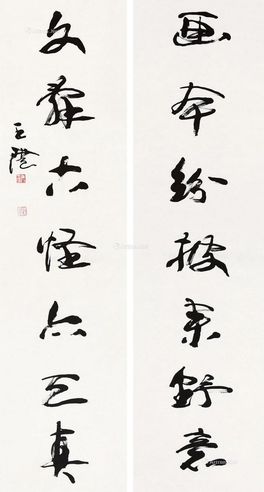 画本纷披来野意
文辞古怪亦天真
王澄